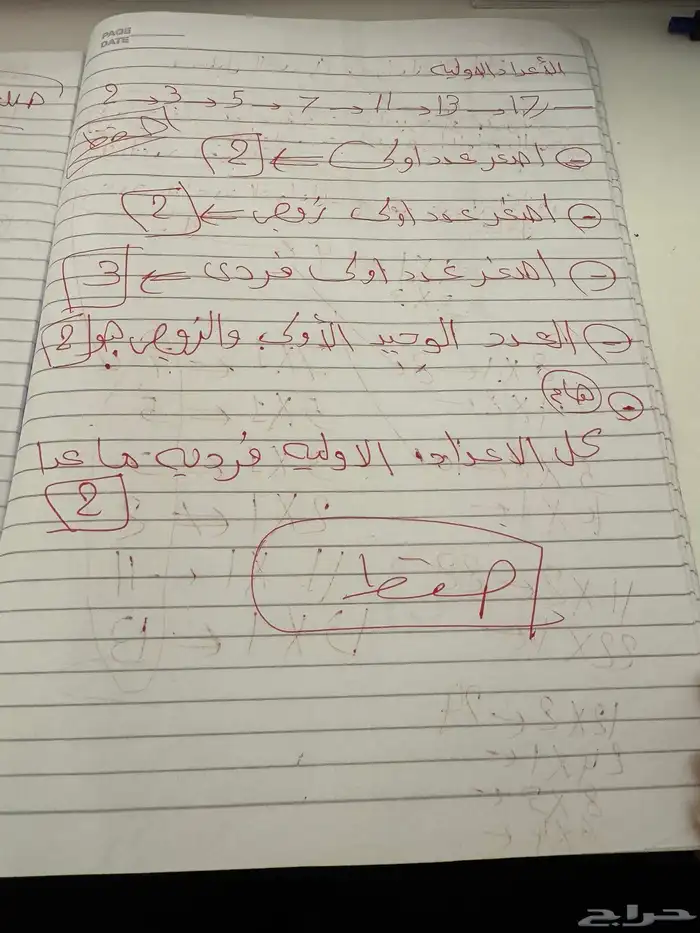 PAGE
DATE
الأعداد الاولية
2 → 3 → 5 → 7 → 11 → 13 → 17
احفظ
- اصغر عدد اولي ← 2
- اصغر عدد اولي زوجي ← 2
- اصغر عدد اولي فردي ← 3
- العدد الوحيد الأولي والزوجي هو 2
- هام
كل الاعداد الاولية فردية ما عدا
2
حفظ
حراج